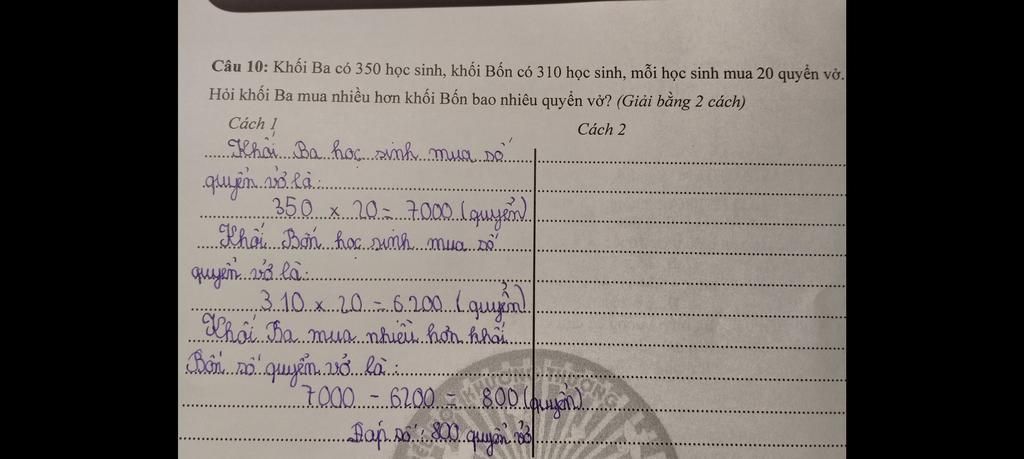 Câu 10: Khối Ba có 350 học sinh, khối Bốn có 310 học sinh, mỗi học sinh mua 20 quyển vở.
Hỏi khối Ba mua nhiều hơn khối Bốn bao nhiêu quyển vở? (Giải bằng 2 cách)
Cách 1
Cách 2
Khối Ba học sinh mua số
quyển vở là:
350 x 20 = 7000 (quyển)
Khối Bốn học sinh mua số
quyển vở là:
310 x 20 = 6200 (quyển)
Khối Ba mua nhiều hơn khối
Bốn số quyển vở là:
7000 - 6200 = 800 (quyển)
Đáp số: 800 quyển vở
KHƯƠNG THƯỢNG